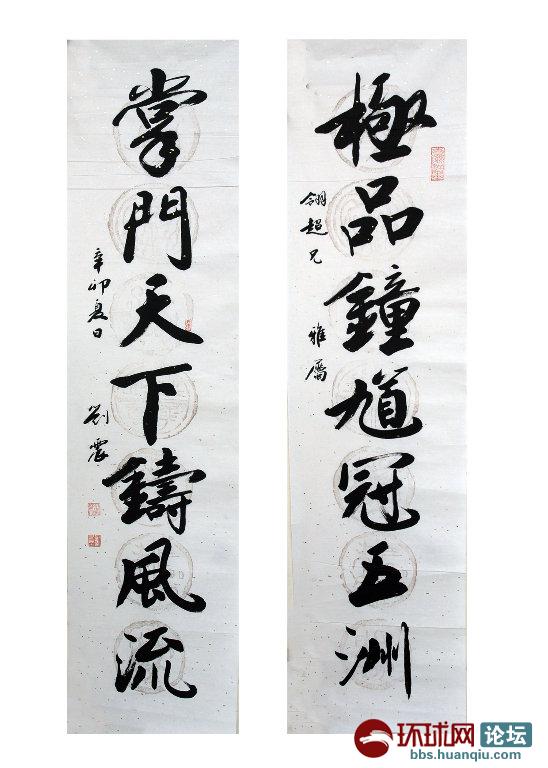 極品鐘馗冠五洲
翎超兄 雅屬
掌門天下鑄風流
辛卯夏日 劉震
环球网 论坛
bbs.huanqiu.com